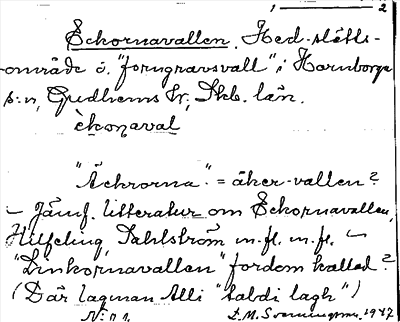 1 — 2
Ekornavallen. Hed-slätts-
område o. "forngravsvall" i Hornborga
s:n, Gudhems hr, Skb. län.
èkonaval
"Äckrorna" = åker-vallen?
– Jämf. litteratur om Ekornavallen,
Hilfeling, Sahlström m.fl. m.fl. –
"Linkornavallen" fordom kallad?
(Där lagman Alli "taldi lagh")
1947